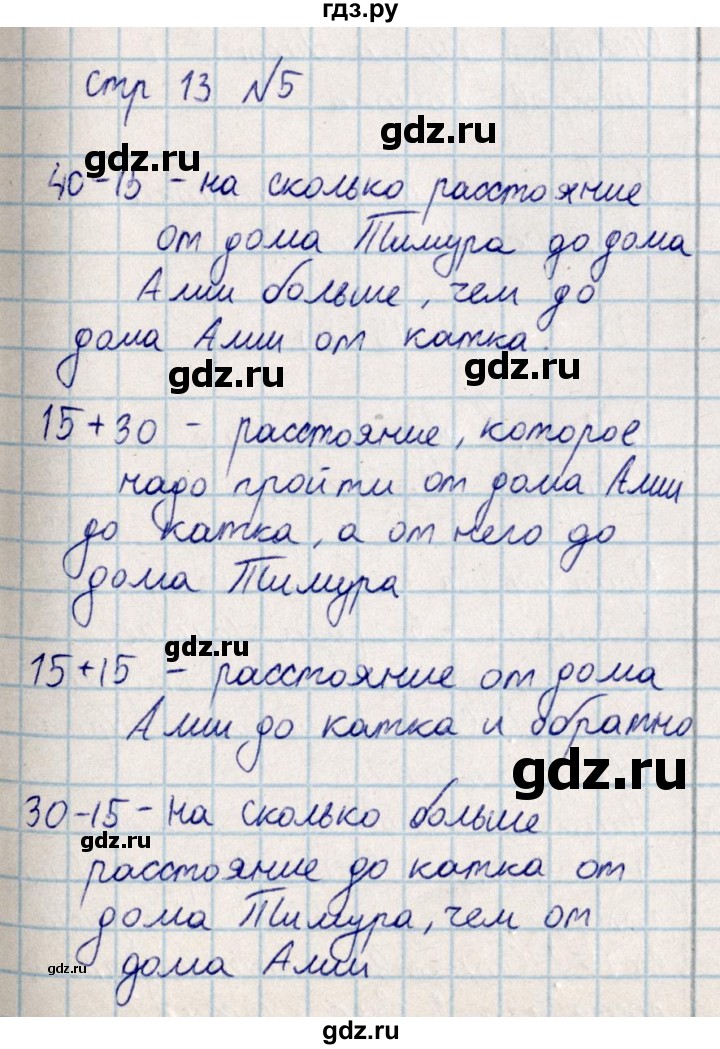 гдз.ру
стр 13 №5
gdz.ru
gdz.ru
40-15 - на сколько расстояние
от дома Тимура до дома
Алии больше, чем до
дома Алии от катка.
gdz.ru
gdz.ru
15+30 - расстояние, которое
надо пройти от дома Алии
до катка, а от него до
дома Тимура
gdz.ru
15+15 - расстояние от дома
Алии до катка и обратно
gdz.ru
30-15 - на сколько больше
gdz.ru
расстояние до катка от
дома Тимура, чем от
gdz.ru
дома Алии
gdz.ru